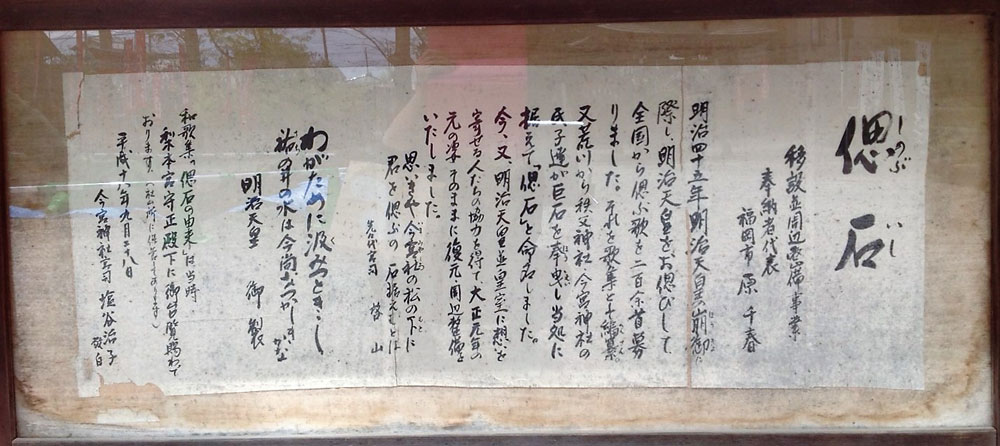 偲石
しのぶ いし
移設並周辺整備事業
奉納者代表
福岡市 原 千春
明治四十五年明治天皇の崩御に
際し、明治天皇をお偲びして
全国から偲ぶ歌を二百余首募
りました。それを歌集と編纂
又荒川から秩父神社、今宮神社の
氏子達が巨石を奉曳し当処に
据えて「偲石」と命名しました。
今、又、明治天皇並皇室に想いを
寄せる人たちの協力を得て大正元年の
元の姿そのままに復元・周辺整備を
いたしました。
思いきや今宮社の松の下に
君を偲ぶの石据えむとは
先々代宮司 山
わがために汲みつときゝし
祐の井の水は今尚なつかしきかな
明治天皇 御製
和歌集「偲石の由来」は当時
梨本宮守正殿下に御台覧賜わって
おります。
平成十八年九月二十八日
今宮神社宮司 塩谷治子
敬白